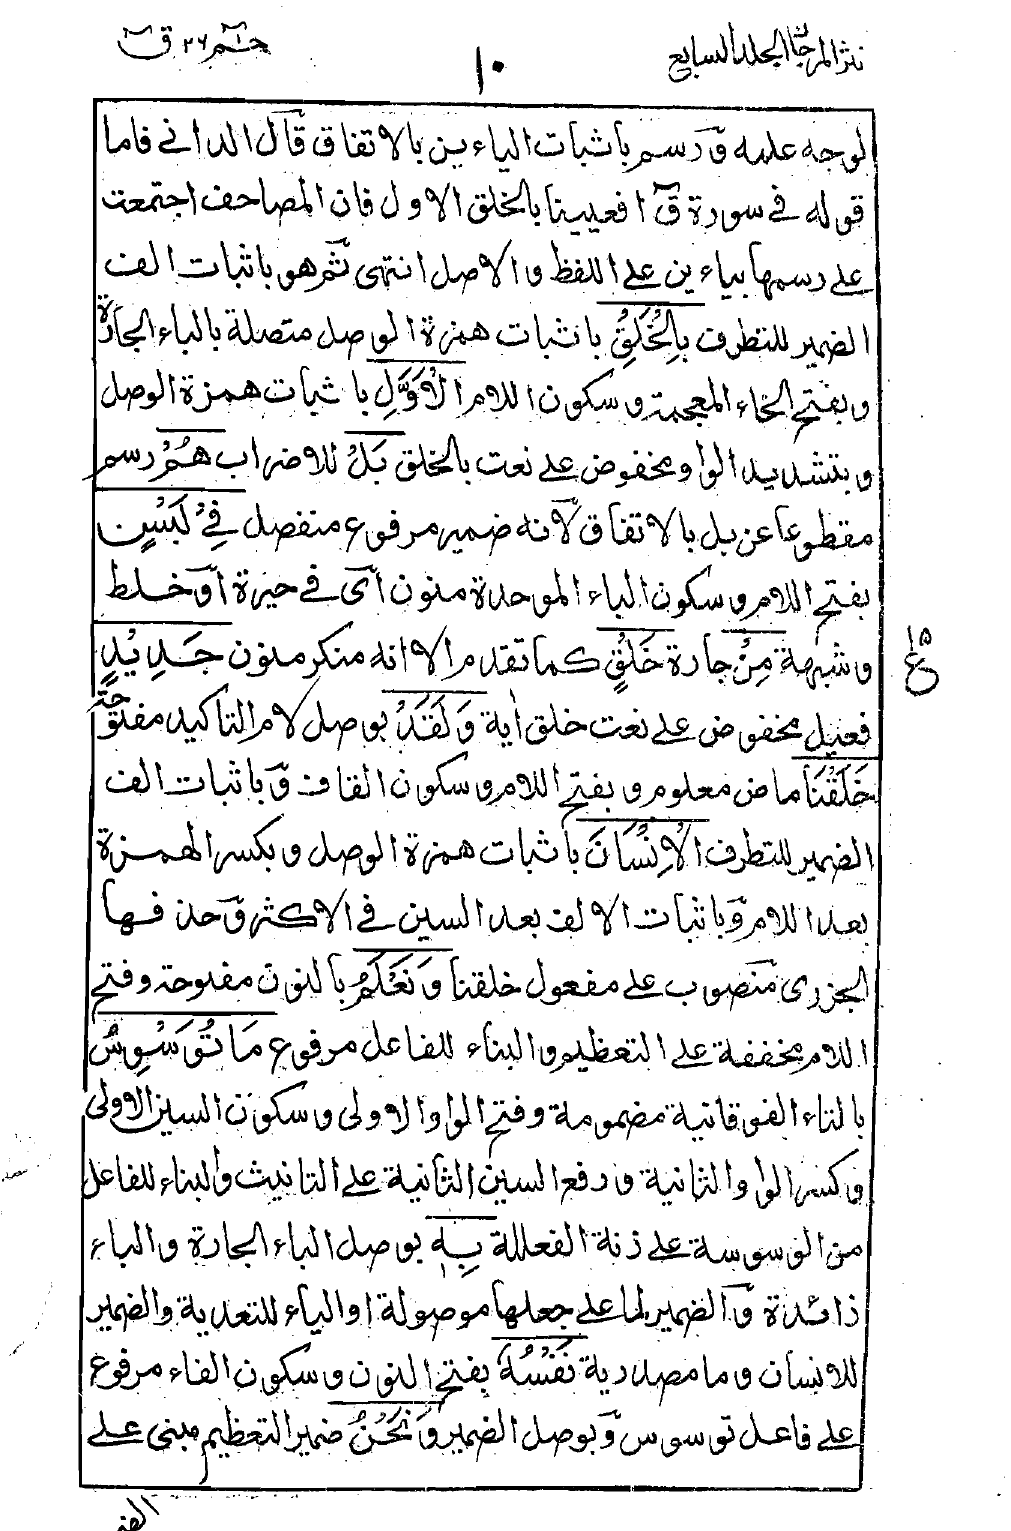 نثر المرجان المجلد السابع
١٠
حٰم ٢٦ ق
لوجه عليه ورسم باثبات الياءين بالاتفاق قال الداني فاما
قوله في سورة ق افعيينا بالخلق الاول فان المصاحف اجتمعت
على رسمها بياءين على اللفظ والاصل انتهى ثم هو باثبات الف
الضمير للتطرف بِالْخَلْقِ باثبات همزة الوصل متصلة بالباء الجارة
وبفتح الخاء المعجمة وسكون اللام الْأَوَّلِ باثبات همزة الوصل
وبتشديد الواو مخفوض على نعت بالخلق بَلْ للاضراب هُمْ رسم
مقطوعا عن بل بالاتفاق لانه ضمير مرفوع منفصل فِيْ لَبْسٍ
بفتح اللام وسكون الباء الموحدة منون اى في حيرة او خلط
وشبهة مِنْ جارة خَلْقٍ كما تقدم الا انه منكر منون جَدِيْدٍ
فعيل مخفوض على نعت خلق اٰية وَلَقَدْ بوصل لام التاكيد مفتوحة
خَلَقْنَا ماض معلوم وبفتح اللام وسكون القاف وباثبات الف
الضمير للتطرف الْاِنْسَانَ باثبات همزة الوصل وبكسر الهمزة
بعد اللام وباثبات الالف بعد السين في الاكثر وحذفها
الجزرى منصوب على مفعول خلقنا وَنَعْلَمُ بالنون مفتوحة وفتح
اللام مخففة على التعظيم والبناء للفاعل مرفوع مَا تُوَسْوِسُ
بالتاء الفوقانية مضمومة وفتح الواو الاولى وسكون السين الاولى
وكسر الواو الثانية ورفع السين الثانية على التانيث والبناء للفاعل
من الوسوسة على زنة الفعللة بِهٖ بوصل الباء الجارة والباء
زائدة والضمير لما على جعلها موصولة او الباء للتعدية والضمير
للانسان وما مصدرية نَفْسُهٗ بفتح النون وسكون الفاء مرفوع
على فاعل توسوس وبوصل الضمير وَنَحْنُ ضمير التعظيم مبنى على
١٥
ع